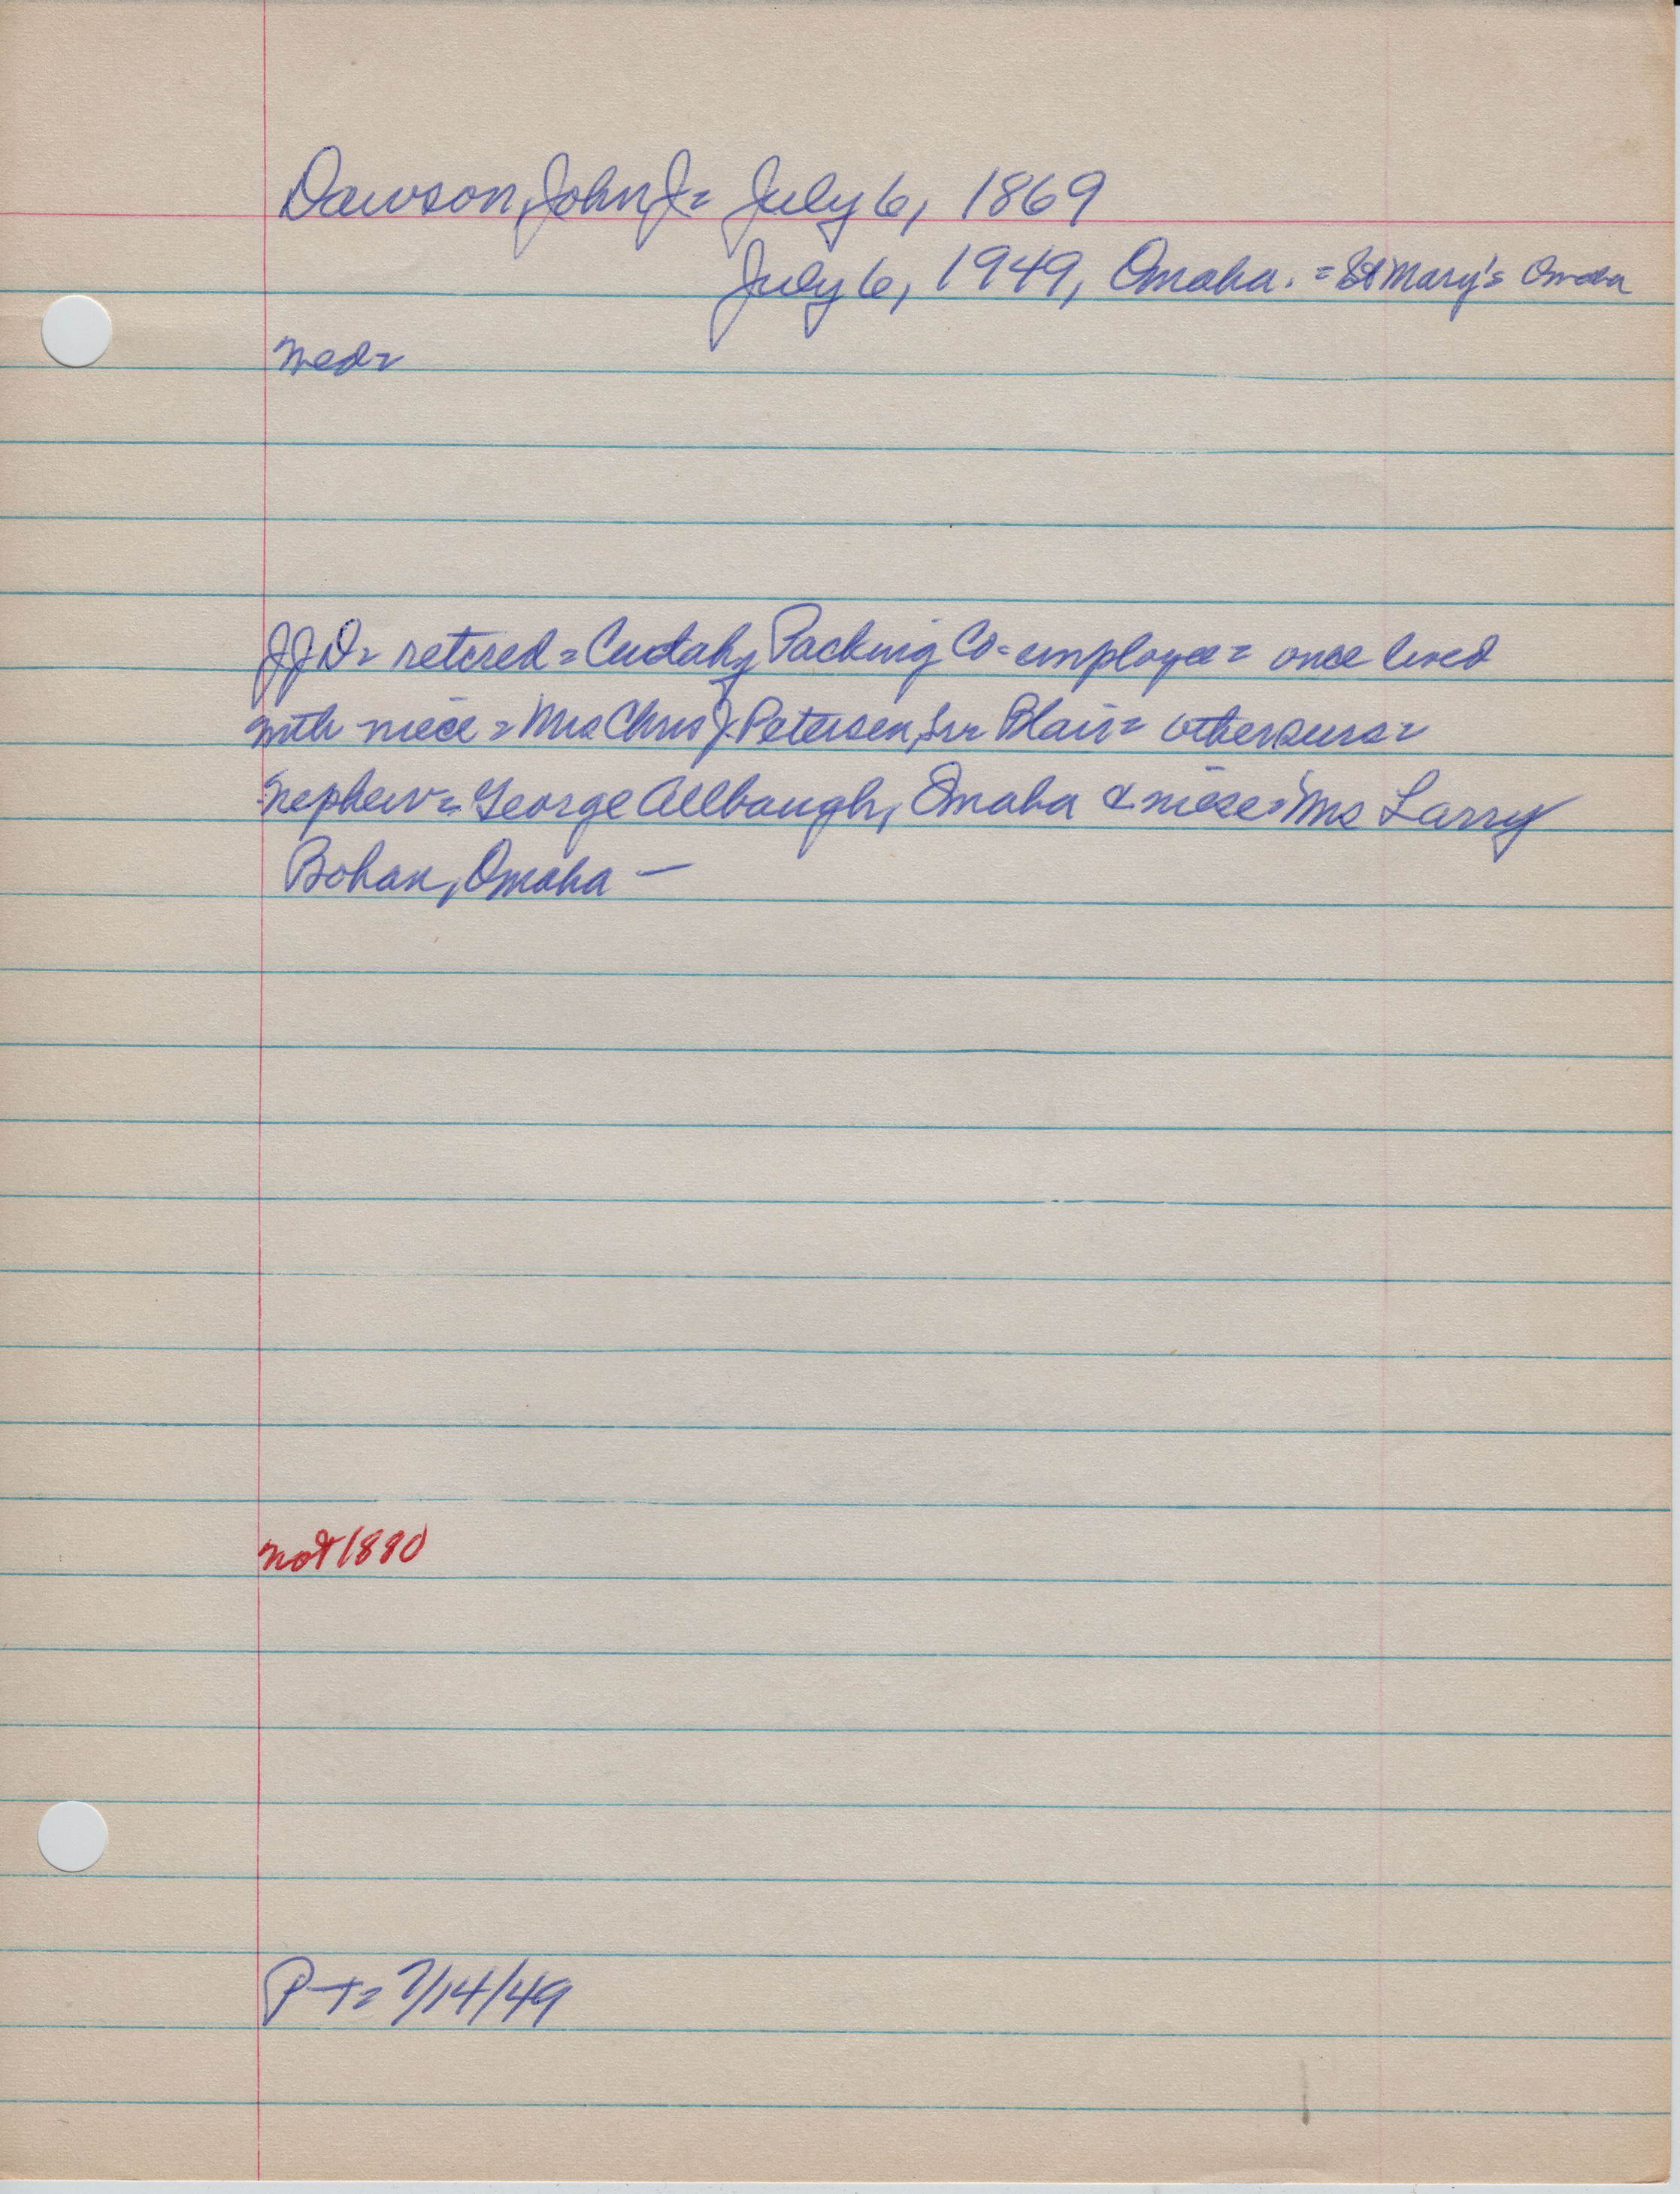 Dawson, John J= July 6, 1869
July 6, 1949, Omaha. = St Mary's Omaha
med=
JJD= retired = Cudahy Packing Co= employee= once lived
with niece = Mrs Chris J. Petersen, Sr= Blair= other survs=
nephew= George Allbaugh, Omaha & niese= Mrs Larry
Bohan, Omaha —
not 1880
P-T= 7/14/49